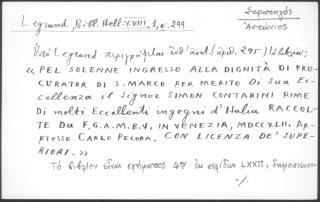 Legrand, Bibl. Hell. XVIII, 1, σ. 299
Στρατηγός
Ἀντώνιος
Ὑπό Legrand περιγράφεται ὑπ' ἀριθ. 295
« PEL SOLENNE INGRESSO ALLA DIGNITÀ DI PRO-
CURATOR DI S. MARCO PER MERITO DI SUA EC-
CELLENZA IL SIGNOR SIMON CONTARINI RIME
DI MOLTI ECCELLENTI INGEGNI D'ITALIA RACCOL-
TE DA F.G.A.M.B.V. IN VENEZIA, MDCCXLII. AP-
PRESSO CARLO PECORA. CON LICENZA DE' SUPE-
RIORI. »
Τό βιβλίον εἶναι σχήματος 4ον ἐκ σελίδων LXXII, δημοσιευ-
./.